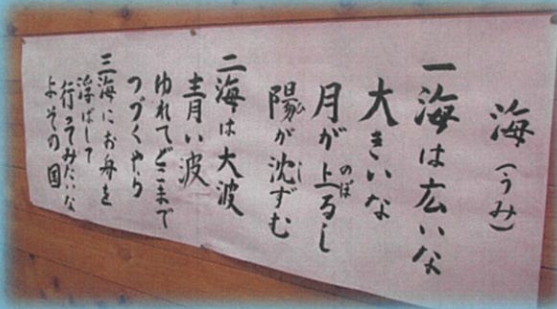 海（うみ）
一 海は広いな
大きいな
月が上るし
のぼ
陽が沈ずむ
ひ
し
二 海は大波
青い波
ゆれてどこまで
つづくやら
三 海にお舟を
浮ばして
行ってみたいな
よその国